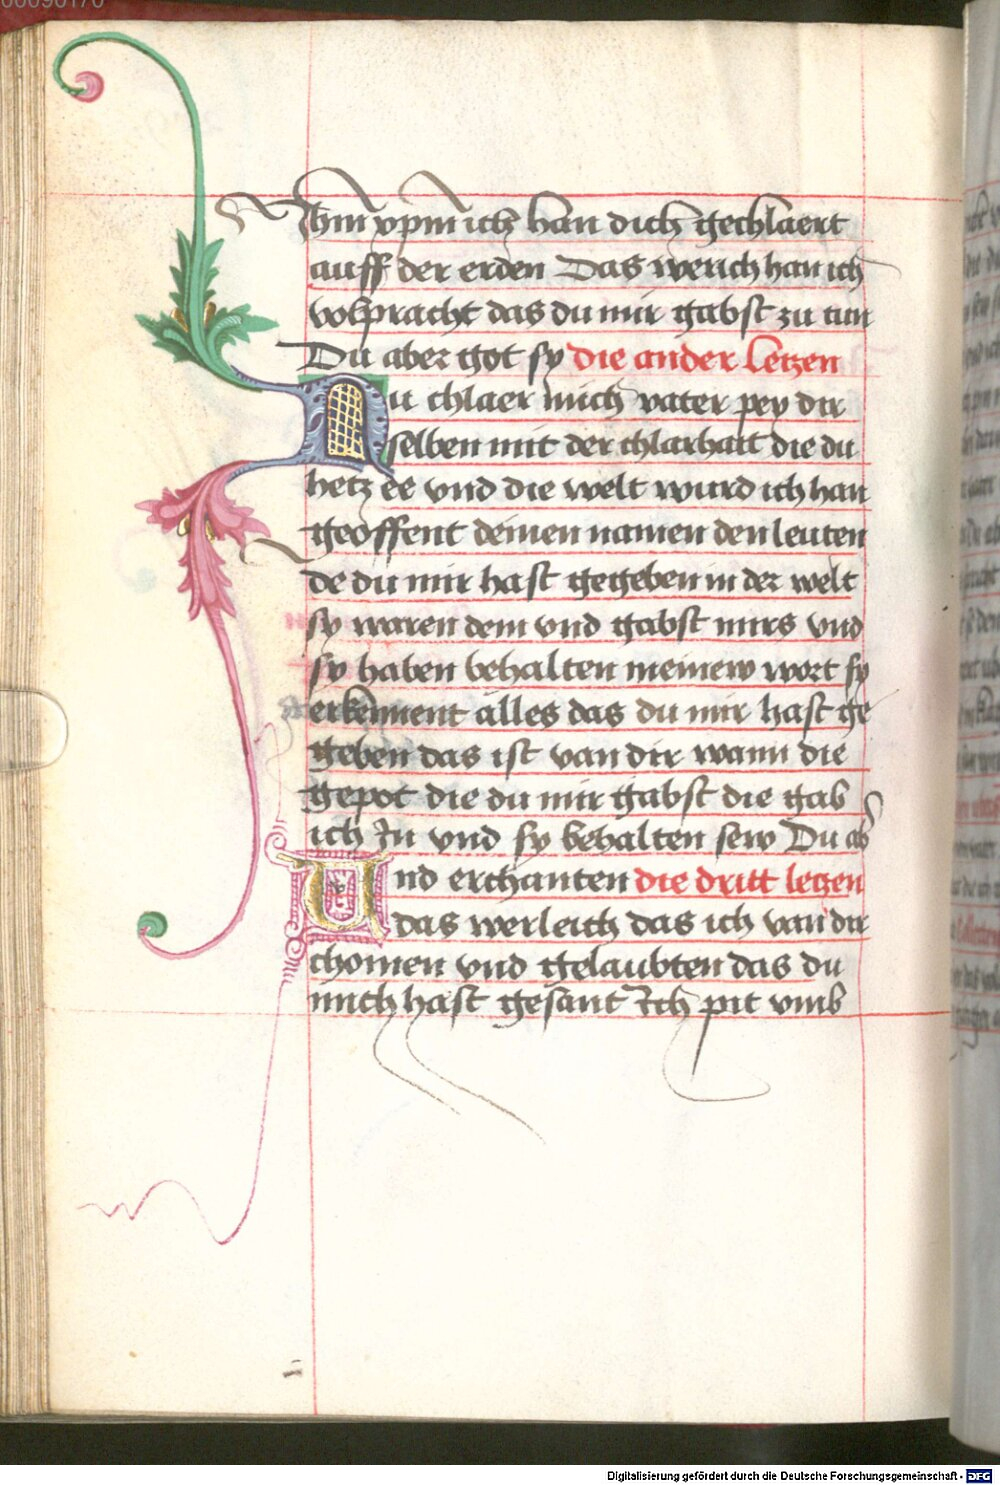 00090170
Jhm xpm ich han dich gechlaert
auff der erden Das werich han ich
volpracht das du mir gabst zu tun
Du aber got sy die ander letzen
Du chlaer mich vater pey dir
selben mit der chlarhait die du
hetz ee vnd die welt wurd ich han
geoffent deinen namen den leuten
de du mir hast gegeben in der welt
sy waren dein vnd gabst mirs vnd
sy haben behalten meinew wort sy
erkennent alles das du mir hast ge
geben das ist van dir wann die
gepot die du mir gabst die gab
ich In vnd sy behalten sew Du ab
Und erchanten die dritt letzen
das werleich das ich van dir
chomen vnd gelaubten das du
mich hast gesant Ich pit vmb
Digitalisierung gefördert durch die Deutsche Forschungsgemeinschaft - DFG